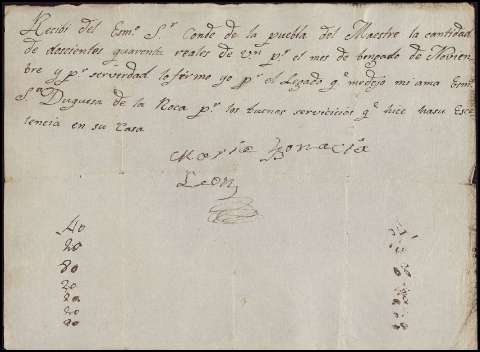 Recibi del Esmº Sr Conde de la puebla del Maestre la cantidad
de doscientos quarenta reales de Vⁿ pr el mes de bengado de Novien
bre y pr ser verdad lo firmo yo pr el Legado qe me dejó mi ama Esmª
Sra Duguesa de la Roca pr los buenos servicicios qe hice hasu Esce
lencia en su Casa
Maria Ygnacia
Leon
40
20
80
20
80
20
80